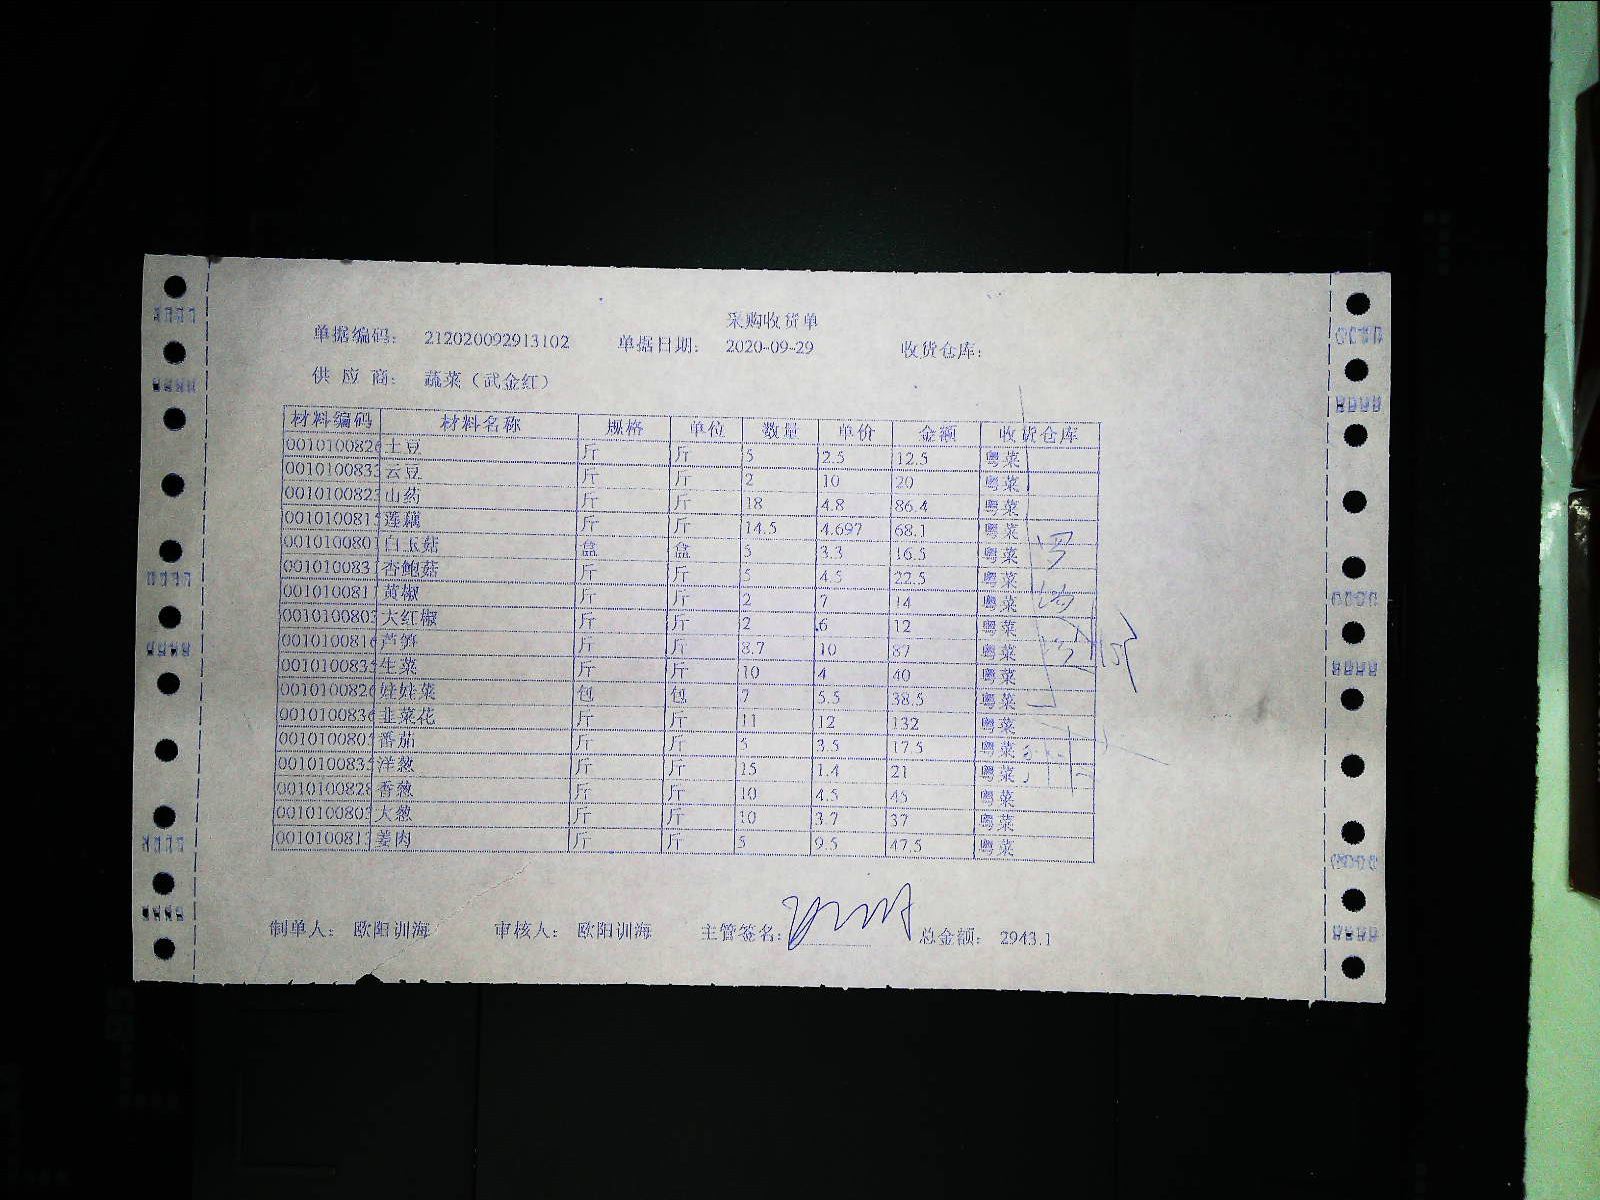 采购收货单
单据编码： 212020092913102 单据日期： 2020-09-29 收货仓库：
供 应 商： 蔬菜（武金红）
材料编码 材料名称 规格 单位 数量 单价 金额 收货仓库
0010100826 土豆 斤 斤 5 2.5 12.5 粤菜
001010083 云豆 斤 斤 2 10 20 粤菜
001010082 山药 斤 斤 18 4.8 86.4 粤菜
001010081 莲藕 斤 斤 14.5 4.697 68.1 粤菜
001010080 白玉菇 盒 盒 5 3.3 16.5 粤菜
001010083 杏鲍菇 斤 斤 5 4.5 22.5 粤菜
001010081 黄椒 斤 斤 2 7 14 粤菜
001010080 大红椒 斤 斤 2 6 12 粤菜
0010100816 芦笋 斤 斤 8.7 10 87 粤菜
001010083 生菜 斤 斤 10 4 40 粤菜
0010100826 娃娃菜 包 包 7 5.5 38.5 粤菜
0010100836 韭菜花 斤 斤 11 12 132 粤菜
001010080 番茄 斤 斤 5 3.5 17.5 粤菜
001010083 洋葱 斤 斤 15 1.4 21 粤菜
0010100828 香葱 斤 斤 10 4.5 45 粤菜
001010080 大葱 斤 斤 10 3.7 37 粤菜
001010081 姜肉 斤 斤 5 9.5 47.5 粤菜
制单人： 欧阳训海 审核人： 欧阳训海 主管签名： 总金额： 2943.1